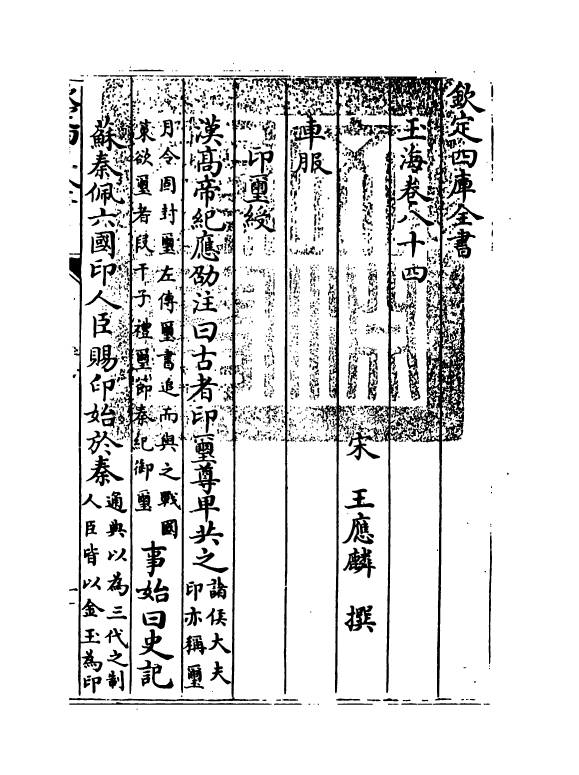 欽定四庫全書
玉海卷八十四
宋 王應麟 撰
車服
印璽綬
漢髙帝紀應劭注曰古者印璽尊卑共之諸侯大夫
印亦稱璽
月令固封璽左傳璽書追而與之戰國
策欲璽者段干子禮璽節秦紀御璽
事始曰史記
蘇秦佩六國印人臣賜印始於秦通典以為三代之制
人臣皆以金玉為印